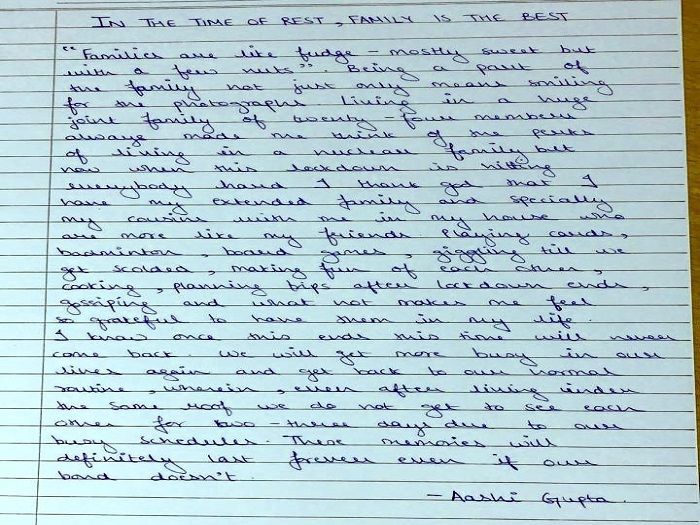 IN THE TIME OF REST, FAMILY IS THE BEST
"Families are like fudge - mostly sweet but
with a few nuts". Being a part of
the family not just only means smiling
for the photographs living in a huge
joint family of twenty-four members
always made me think of the perks
of living in a nuclear family but
now when this lockdown is hitting
everybody hard I thank god that I
have my extended family and specially
my cousins with me in my house who
are more like my friends. Playing cards,
badminton, board games, giggling till we
get scolded, making fun of each other,
cooking, planning trips after lockdown ends,
gossiping and what not makes me feel
so grateful to have them in my life.
I know once this ends this time will never
come back. We will get more busy in our
lives again and get back to our normal
routine, wherein, even after living under
the same roof we do not get to see each
other for two-three days due to our
busy schedules. These memories will
definitely last forever even if our
bond doesn't.
- Aashi Gupta.